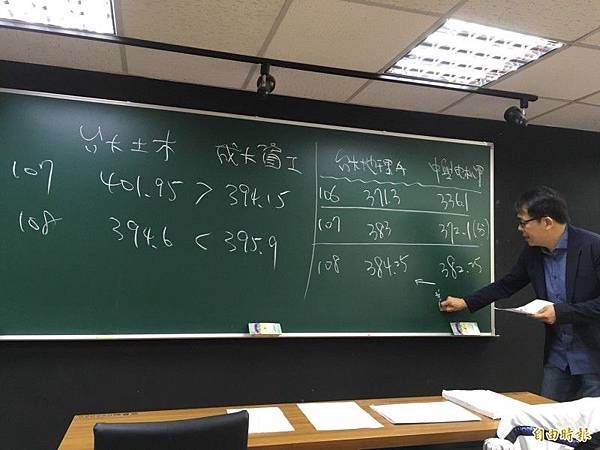 台大土木 成大資工
107 401.95 > 394.15
108 394.6 < 395.9
台大地理A 中興電機甲
106 371.3 336.1
107 383 372.1(55)
108 384.25 382.25
←
自由時報